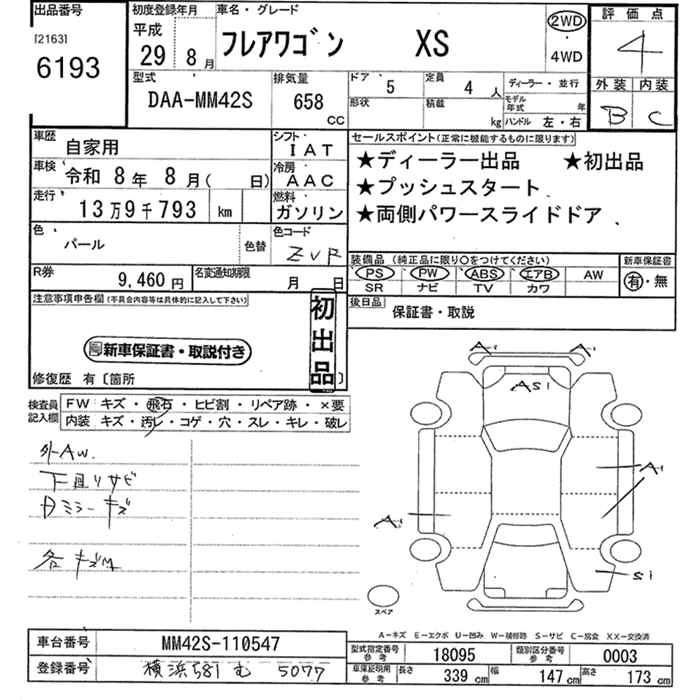 出品番号
[2163]
6193
初度登録年月
平成
29 8月
車名・グレード
フレアワゴン XS
2WD
・
4WD
評価点
4
外装 内装
B C
型式
DAA-MM42S
排気量
658
CC
ドア
5
定員
4 人
ディーラー・並行
形状
積載
kg
モデル年式 年
ハンドル 左・右
車歴
自家用
シフト
IAT
車検
令和 8年 8月( 日)
冷房
AAC
走行
13万9千793 km
燃料
ガソリン
色
パール
色替
色コード
ZVR
R券
9,460円
名変通知期限
月 日
セールスポイント(正常に機能するものに限ります)
★ディーラー出品 ★初出品
★プッシュスタート
★両側パワースライドドア
装備品(純正品に限り○をつけてください)
PS ・ PW ・ ABS ・ エアB ・ AW
SR ナビ TV カワ
新車保証書
有・無
後日品
保証書・取説
注意事項申告欄(不具合内容等は具体的に記入して下さい)
新車保証書・取説付き
初出品
修復歴 有〔箇所 〕
検査員記入欄
FW キズ・飛石・ヒビ割・リペア跡・×要
内装 キズ・汚レ・コゲ・穴・スレ・キレ・破レ
外AW.
下廻りサビ
ミラーキズ
各キズM
A1
A1
AS1
A1
A1
S1
スペア
A−キズ E−エクボ U−凹み W−補修跡 S−サビ C−腐食 XX−交換済
車台番号
MM42S-110547
登録番号
横浜581 む 5077
型式指定番号
参考
18095
類別区分番号
参考
0003
車庫証明用
参考
長さ
339 cm
幅
147 cm
高さ
173 cm